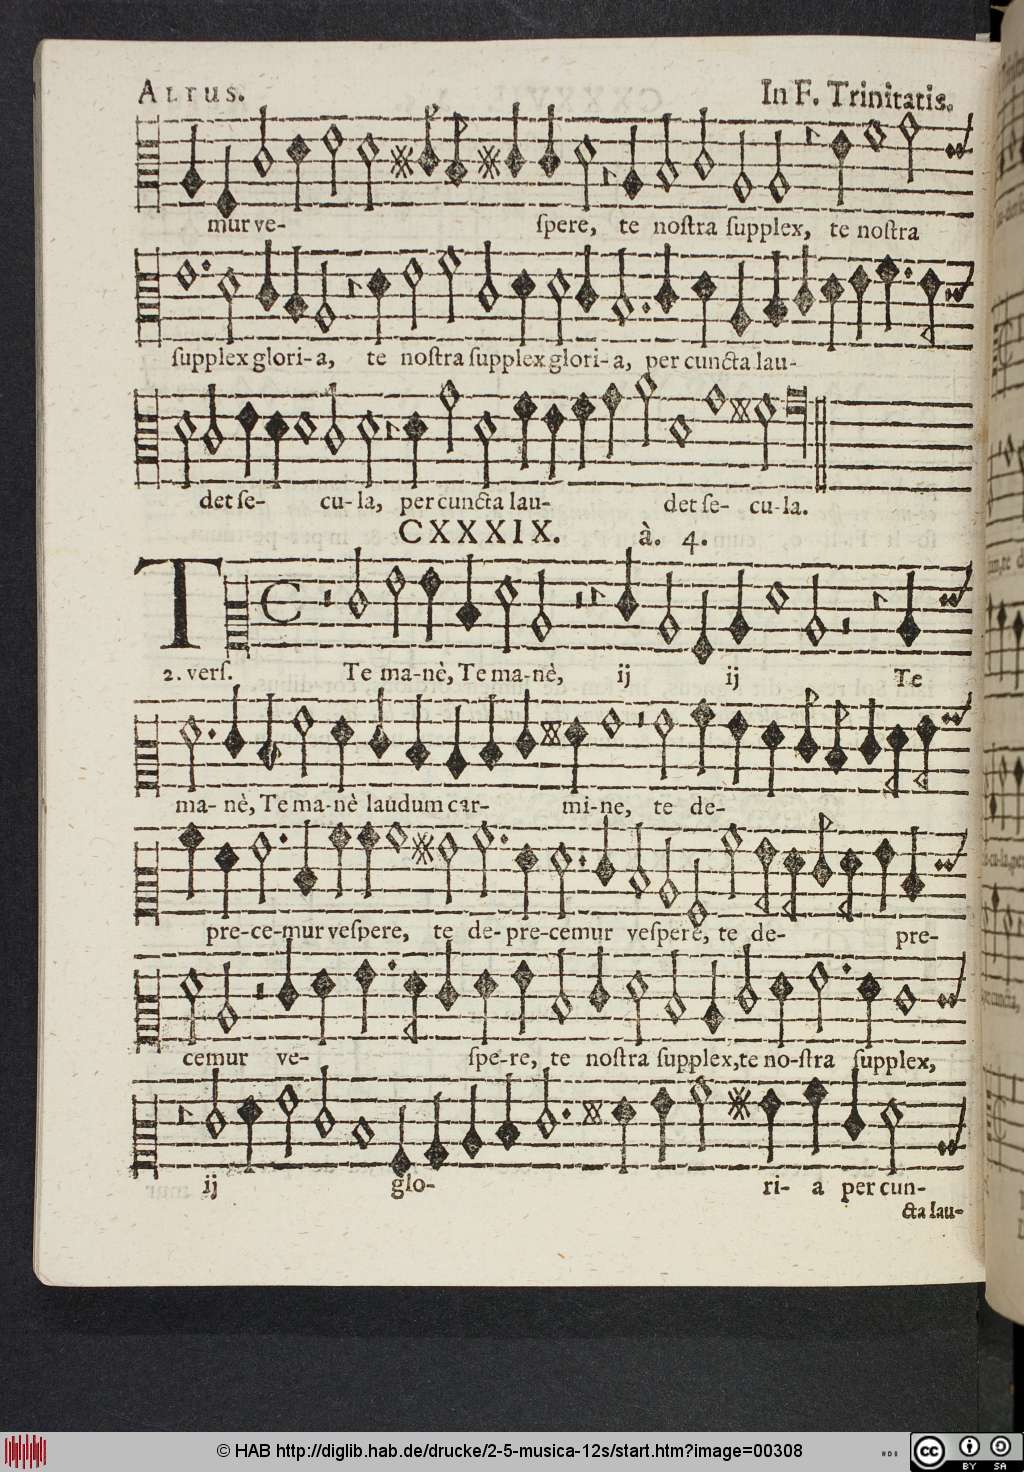 ALTUS. In F. Trinitatis.
mur ve- ſpere, te noſtra ſupplex, te noſtra
ſupplex glori-a, te noſtra ſupplex glori-a, per cuncta lau-
det ſe- cu-la, per cuncta lau- det ſe- cu-la.
CXXXIX. à. 4.
T
2. verſ. Te ma-nè, Te ma-nè, ij ij Te
ma-nè, Te ma-nè laudum car- mi-ne, te de-
pre-ce-mur veſpere, te de-pre-cemur veſpere, te de- pre-
cemur ve- ſpe-re, te noſtra ſupplex, te no-ſtra ſupplex,
ij glo- ri- a per cun-
cta lau-
© HAB http://diglib.hab.de/drucke/2-5-musica-12s/start.htm?image=00308
cc BY SA